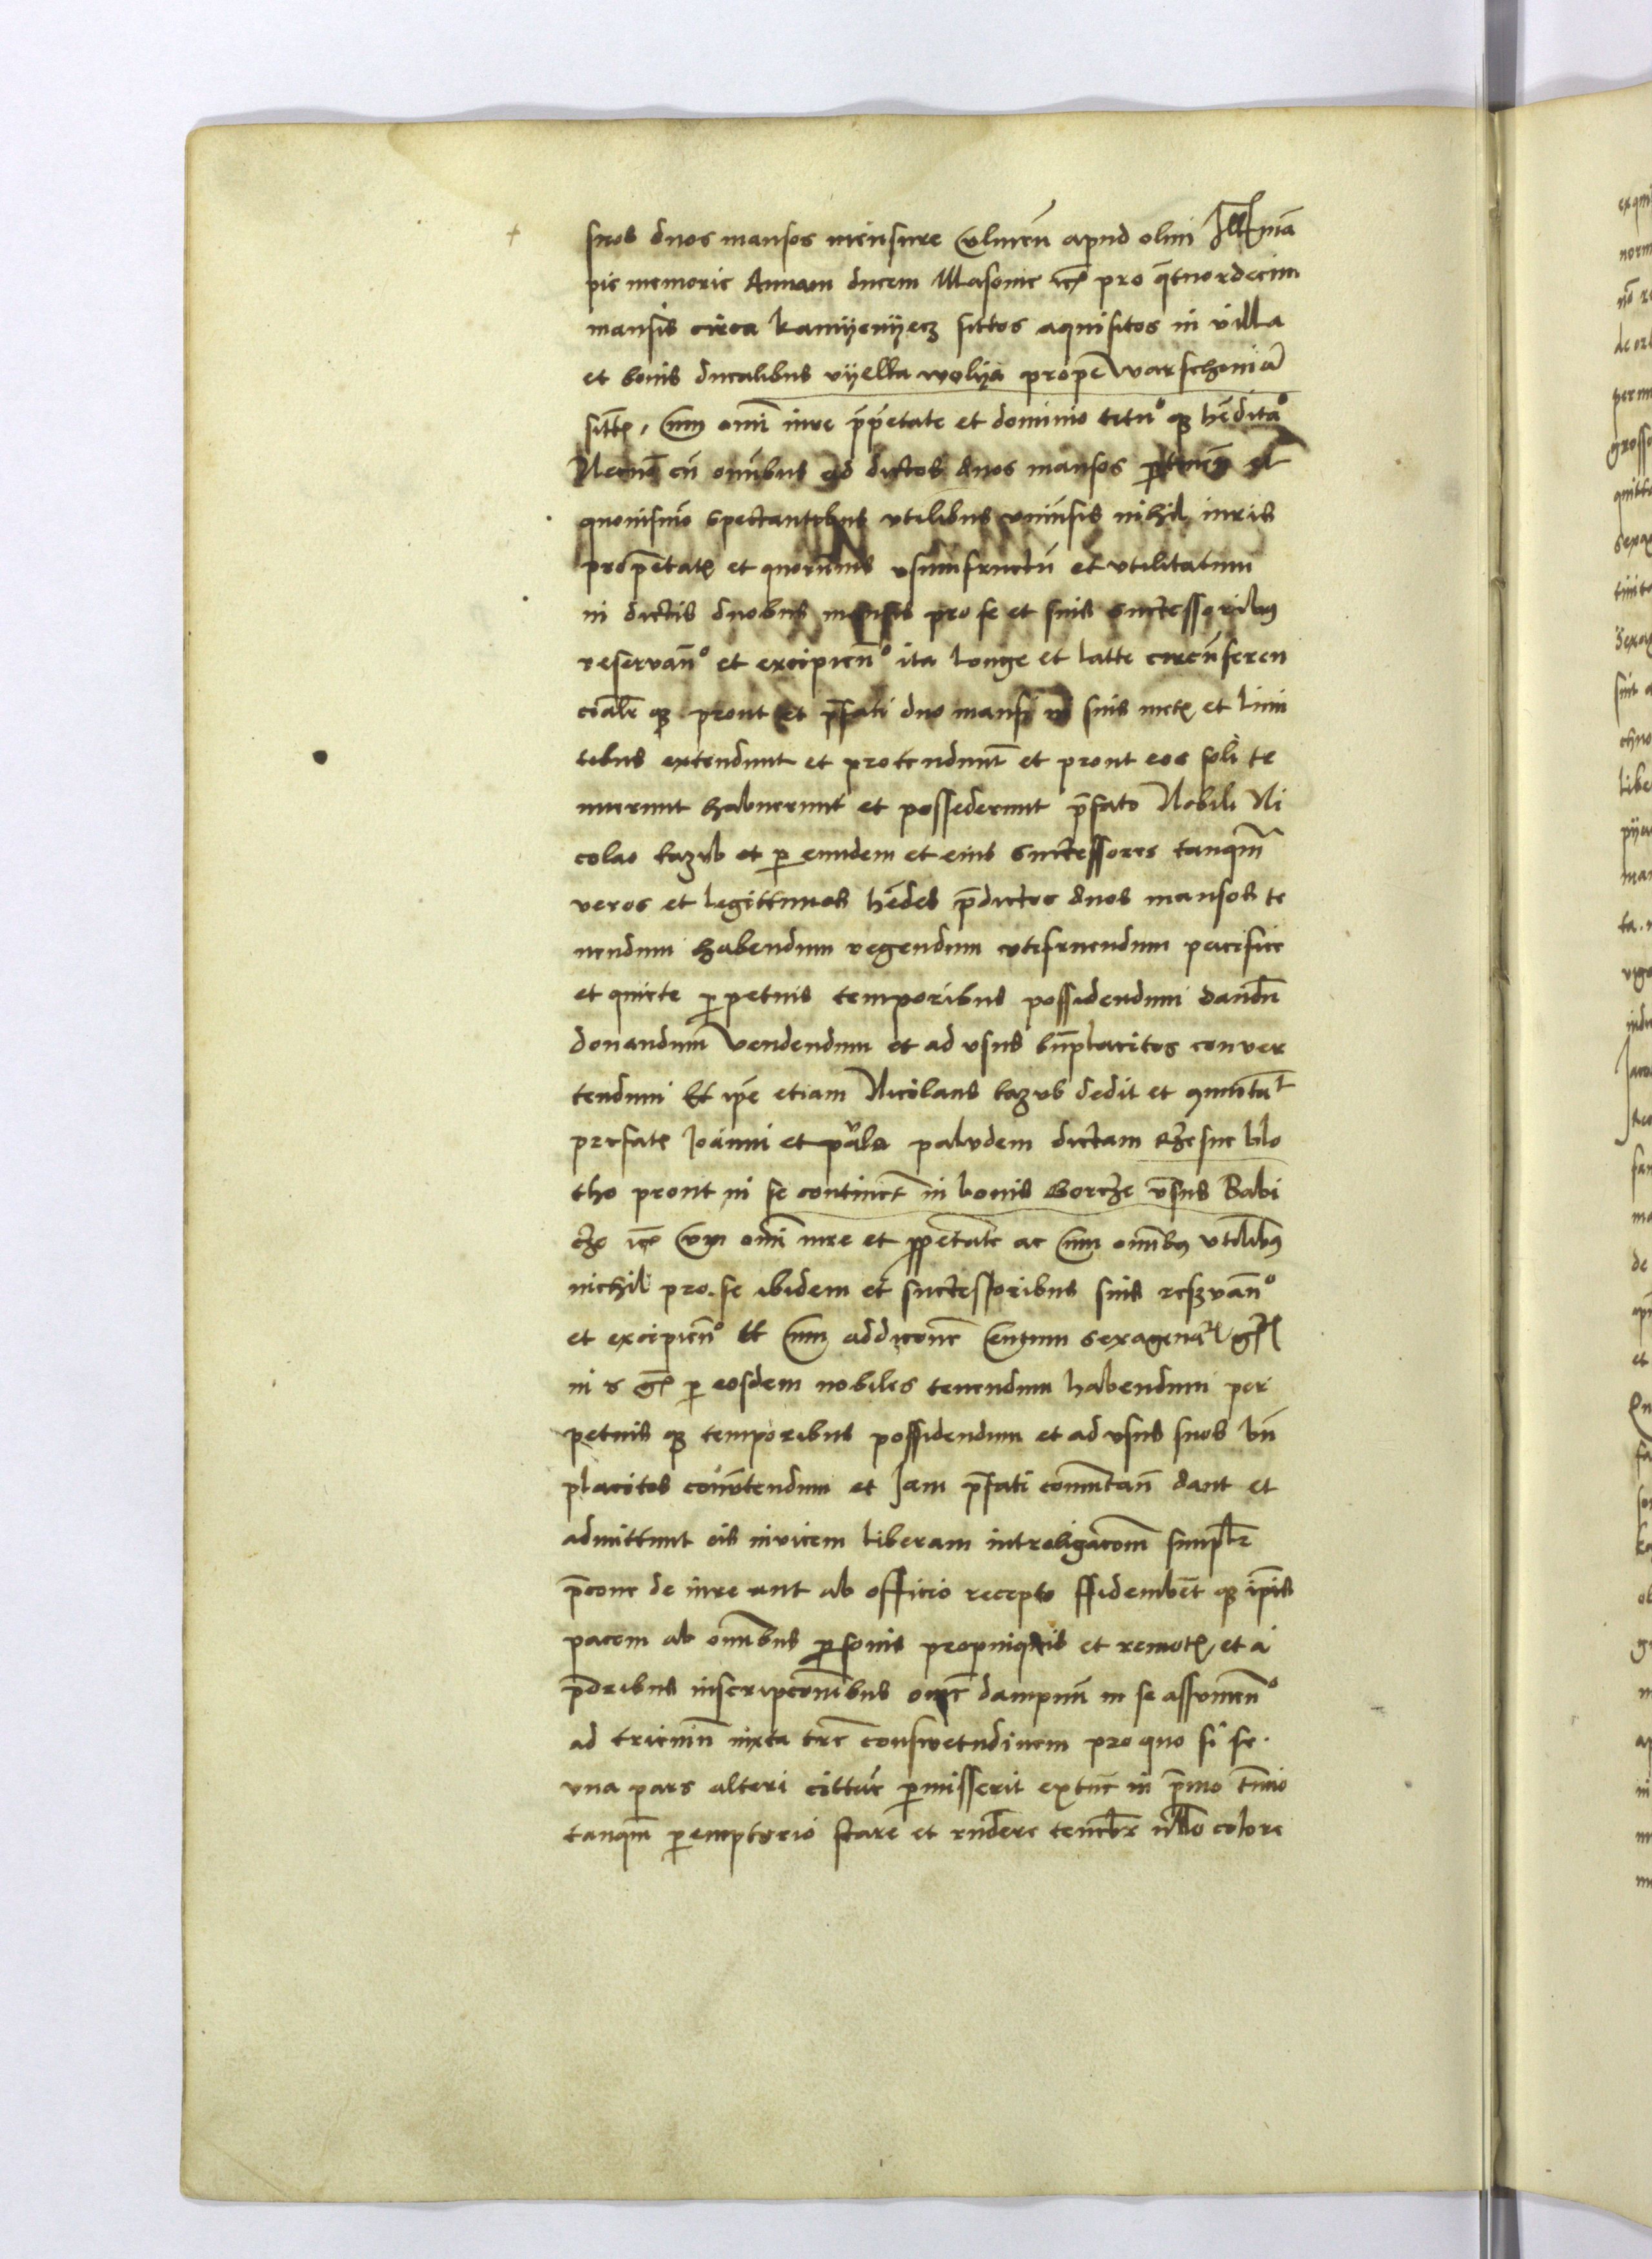 suos duos mansos mensure Culmen̄ apud olim Illmā
pie memorie Annam ducem Masouie etc pro q̄tuordecim
mansis circa kamyenyecz sittos aquisitos in villa
et bonis ducalibus vyelka wolya prope Warschouiā
sitt, cum omi iure ꝓp̄etate et dominio tetuᵒ qꝫ hēditaᵒ
Necnō cū omībus ad dictos duos mansos ꝑtinen̄
quouismō spectantibus vtilibus vniūsis nihil iuris
prop̄etatꝭ et quorūuis vsumfructū et vtilitatum
in dictis duobus mansis pro se et suis successoribꝰ
reservan̄ᵒ et excipien̄ᵒ ita longe et latte circūferen
cialr qꝫ prout et p̄fati duo mansi in suis metꝭ et limi
tibus extendunt et protendunt̄ et prout eos soli te
nuerunt habuerunt et possederunt p̄fato Nobili Ni
colao kazub et ꝑ eundem et eius successores tanqm̄
veros et legittimos hēdes p̄dictos duos mansos te
nendum habendum regendum utifruendum pacifice
et quiete ꝑpetuis temporibus possidendum dandū
donandum vendendum et ad vsus bn̄placitos conuer
tendum Et ip̄e etiam Nicolaus kazub dedit et
prefatꝭ Joanni et paludem dictam blo
tho prout in se continet̄ in bonis Gorcze v̄sus Babi
cze etc Cum omī iure et ꝓp̄etate ac cum omībꝰ vtilibꝰ
nichil pro se ibidem et successoribus suis resꝫvan̄ᵒ
et excipien̄ᵒ Et cum addicōne Centum sexagenaꝝ gr̄
in gr̄ ꝑ eosdem nobiles tenendum habendum per
petuis qꝫ temporibus possidendum et ad vsus suos bn̄
placitos conūtendum et Jam p̄fati comutan̄ dant et
admittunt eis invicem liberam intro ligacōm̄ simplr
p̄cone de iure aut ab officio recepto ffidembēt qꝫ ip̄is
pacem ab omībus ꝑsonis propinquis et remotꝭ, et a
p̄oribus inscripcōnibus om̄e dampnū in se assumen̄ᵒ
ad trienniū iuxta tr̄e conswetudinem pro quo si se
vna pars alteri cittar̄ ꝑmisserit extūc in p̄mo tm̄io
tanqm̄ ꝑemptorio stare et rn̄dere tenebr̄ nllo colore